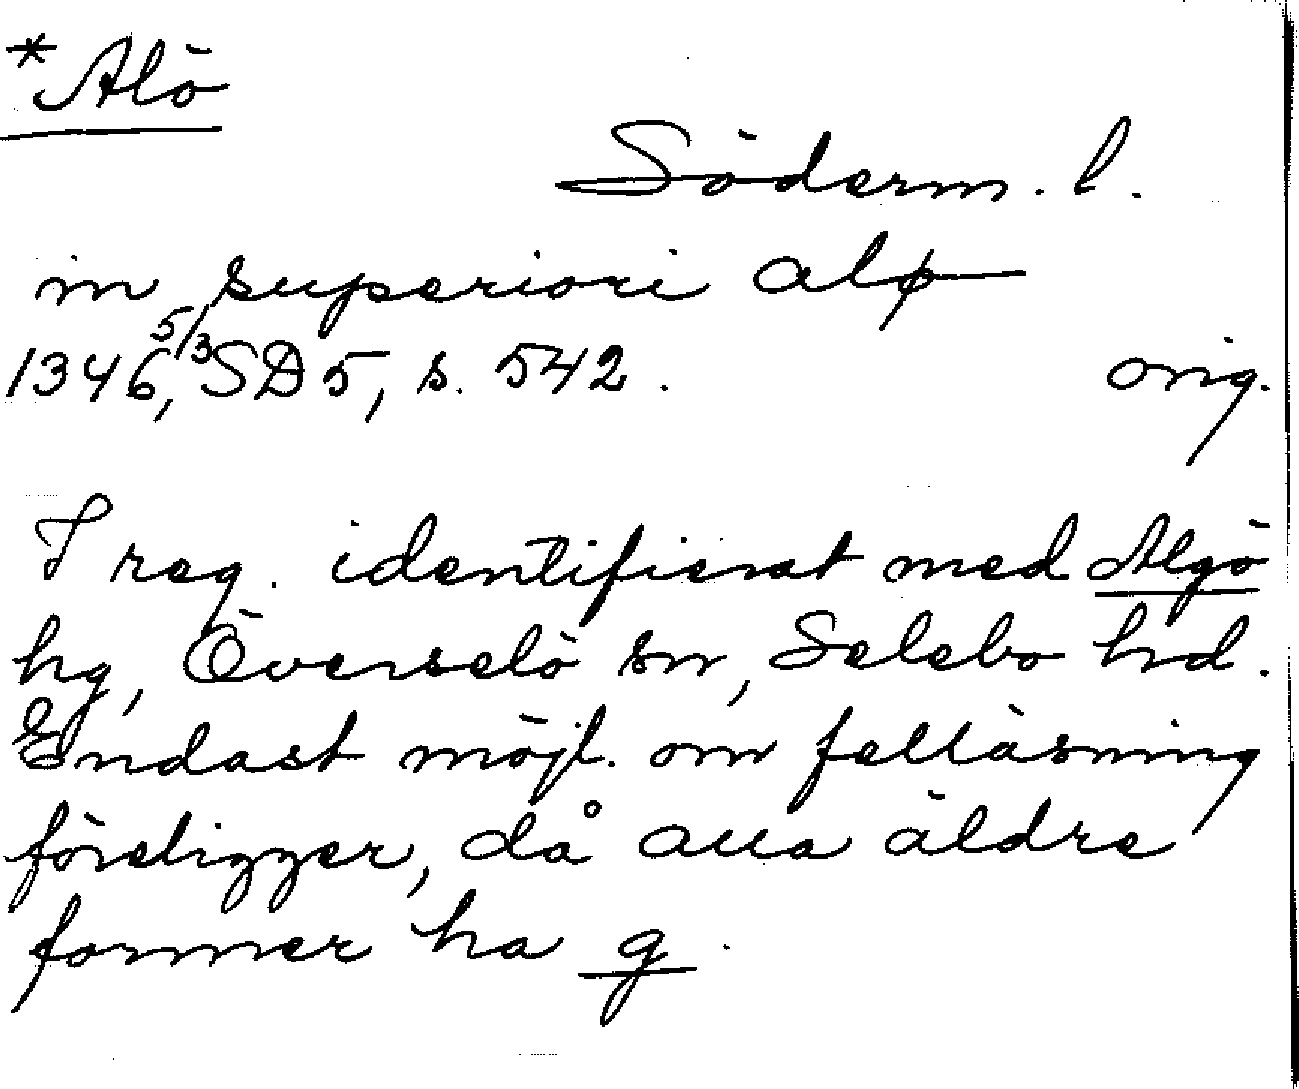 *Alö
Söderm. l.
in superiori alø
1346 5/3, SD 5, s. 542. orig.
I reg. identifierat med Algö
hg, Överselö sn, Selebo hd.
Endast möjl. om felläsning
föreligger, då alla äldre
former ha g.